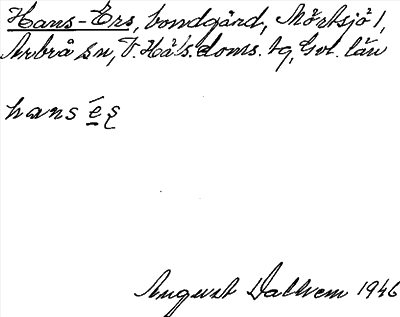 Hans-Ers, bondgård, Mörtsjö 1,
Arbrå sn, V. Hä:s. doms. tg, Gvl. län
hans é̱ ʂ
August Dallvem 1946